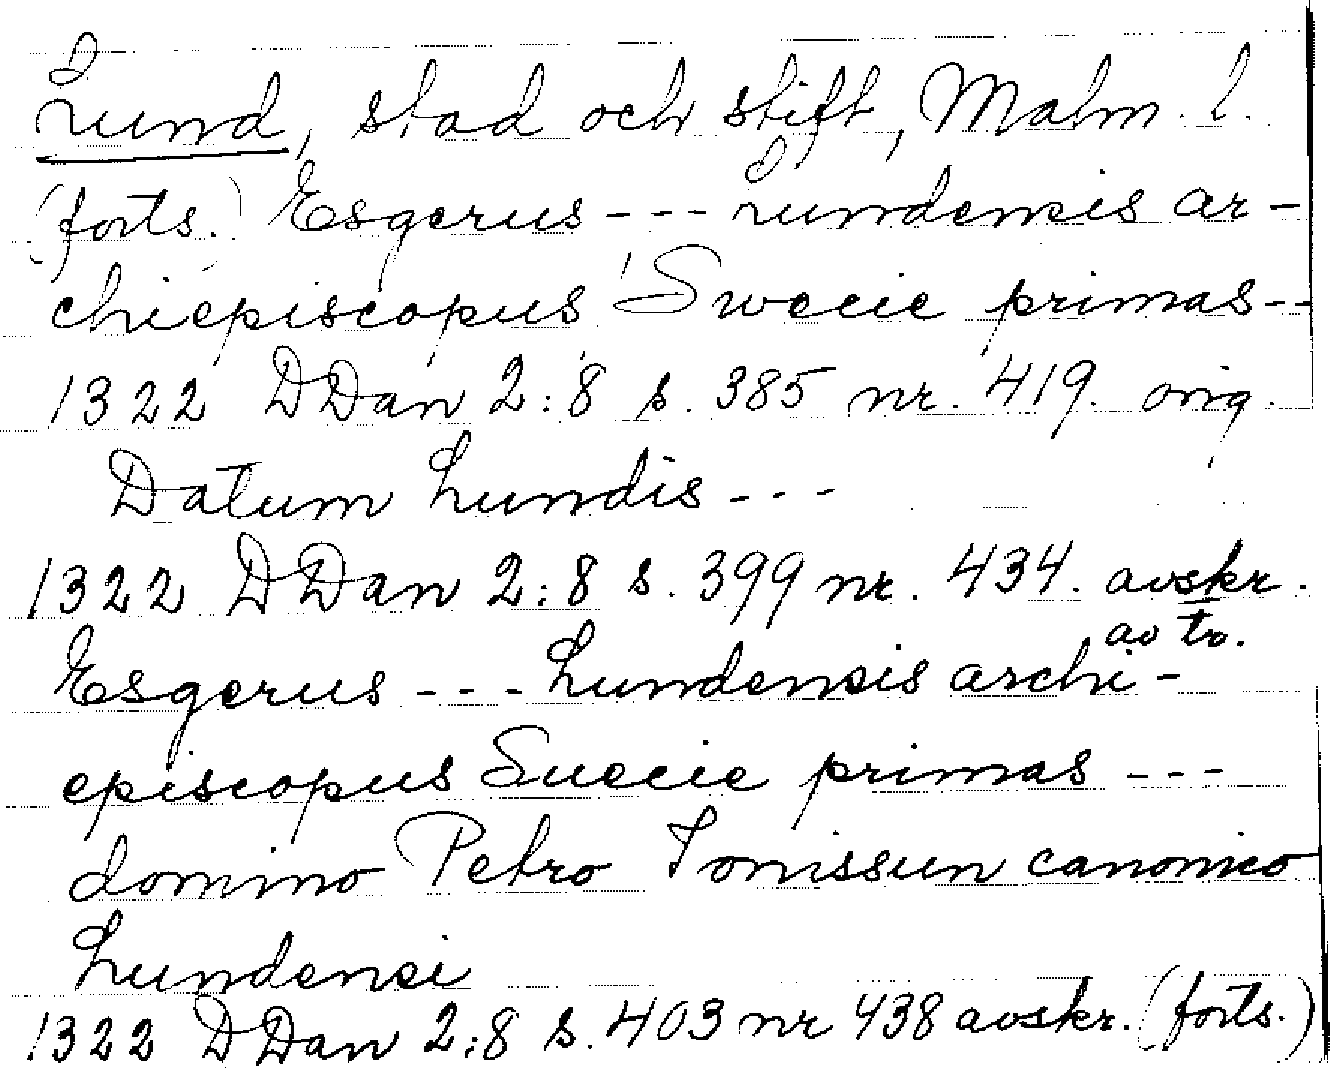 Lund, stad och stift, Malm. l.
(forts.) Esgerus --- Lundensis ar-
chiepiscopus Swecie primas--
1322 DDan 2:8 s. 385 nr. 419. orig.
Datum Lundis ---
1322 DDan 2:8 s. 399 nr. 434. avskr.
av tr.
Esgerus --- Lundensis archi-
episcopus Suecie primas ---
domino Petro Tonissun canonico
Lundensi
1322 DDan 2:8 s. 403 nr 438 avskr. (forts.)